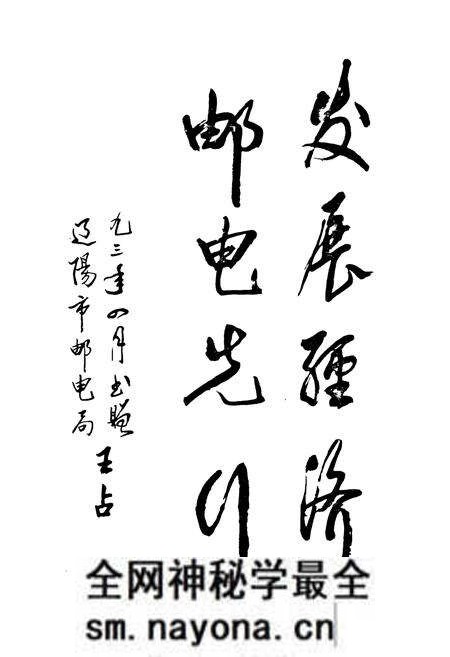 发展经济
邮电先行
九三年四月书赠
辽陽市邮电局
王占
全网神秘学最全
sm.nayona.cn